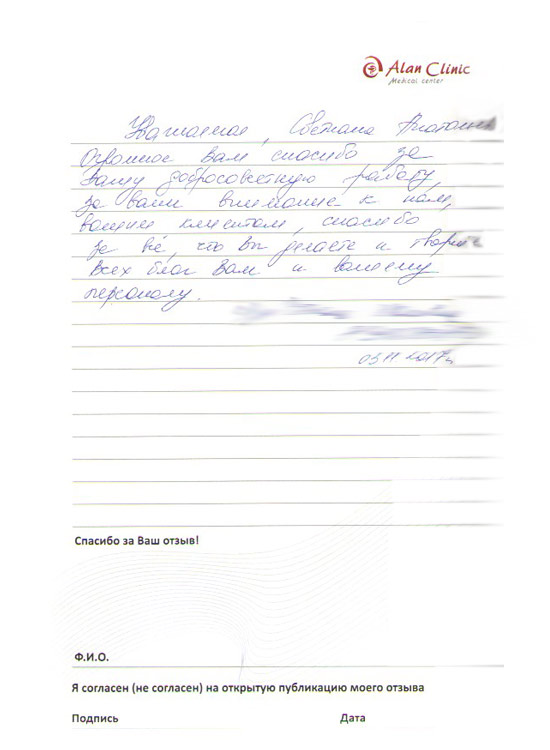 Alan Clinic
Medical center
Уважаемая, Светлана
Огромное вам спасибо за
Вашу добросовестную работу,
за ваше внимание к нам,
вашим клиентам, спасибо
за всё, что Вы делаете и творите
Всех благ Вам и вашему
персоналу.
03 11 2017г.
Спасибо за Ваш отзыв!
Ф.И.О.
Я согласен (не согласен) на открытую публикацию моего отзыва
Подпись Дата